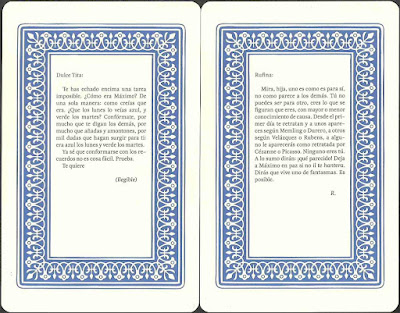 Dulce Tita:
Te has echado encima una tarea
imposible. ¿Cómo era Máximo? De
una sola manera: como creías que
era. ¿Que los lunes lo veías azul, y
verde los martes? Confórmate, por
mucho que te digan los demás, por
mucho que añadas y amontones, por
mil dudas que hagan surgir para ti
era azul los lunes y verde los martes.
Ya sé que conformarse con los re-
cuerdos no es cosa fácil. Prueba.
Te quiere
(Ilegible)
Rufina:
Mira, hija, uno es como es para sí,
no como parece a los demás. Tú no
puedes ser para otro, eres lo que se
figuran que eres, con mayor o menor
conocimiento de causa. Desde el primer
día te retratan y a unos apare-
ces según Memling o Durero, a otros
según Velázquez o Rubens, a algu-
no le aparecerás como retratada por
Cézanne o Picasso. Ninguno eres tú.
A lo sumo dirán: ¡qué parecido! Deja
a Máximo en paz si no il te hantera.
Dirás que vive uno de fantasmas. Es
posible.
R.